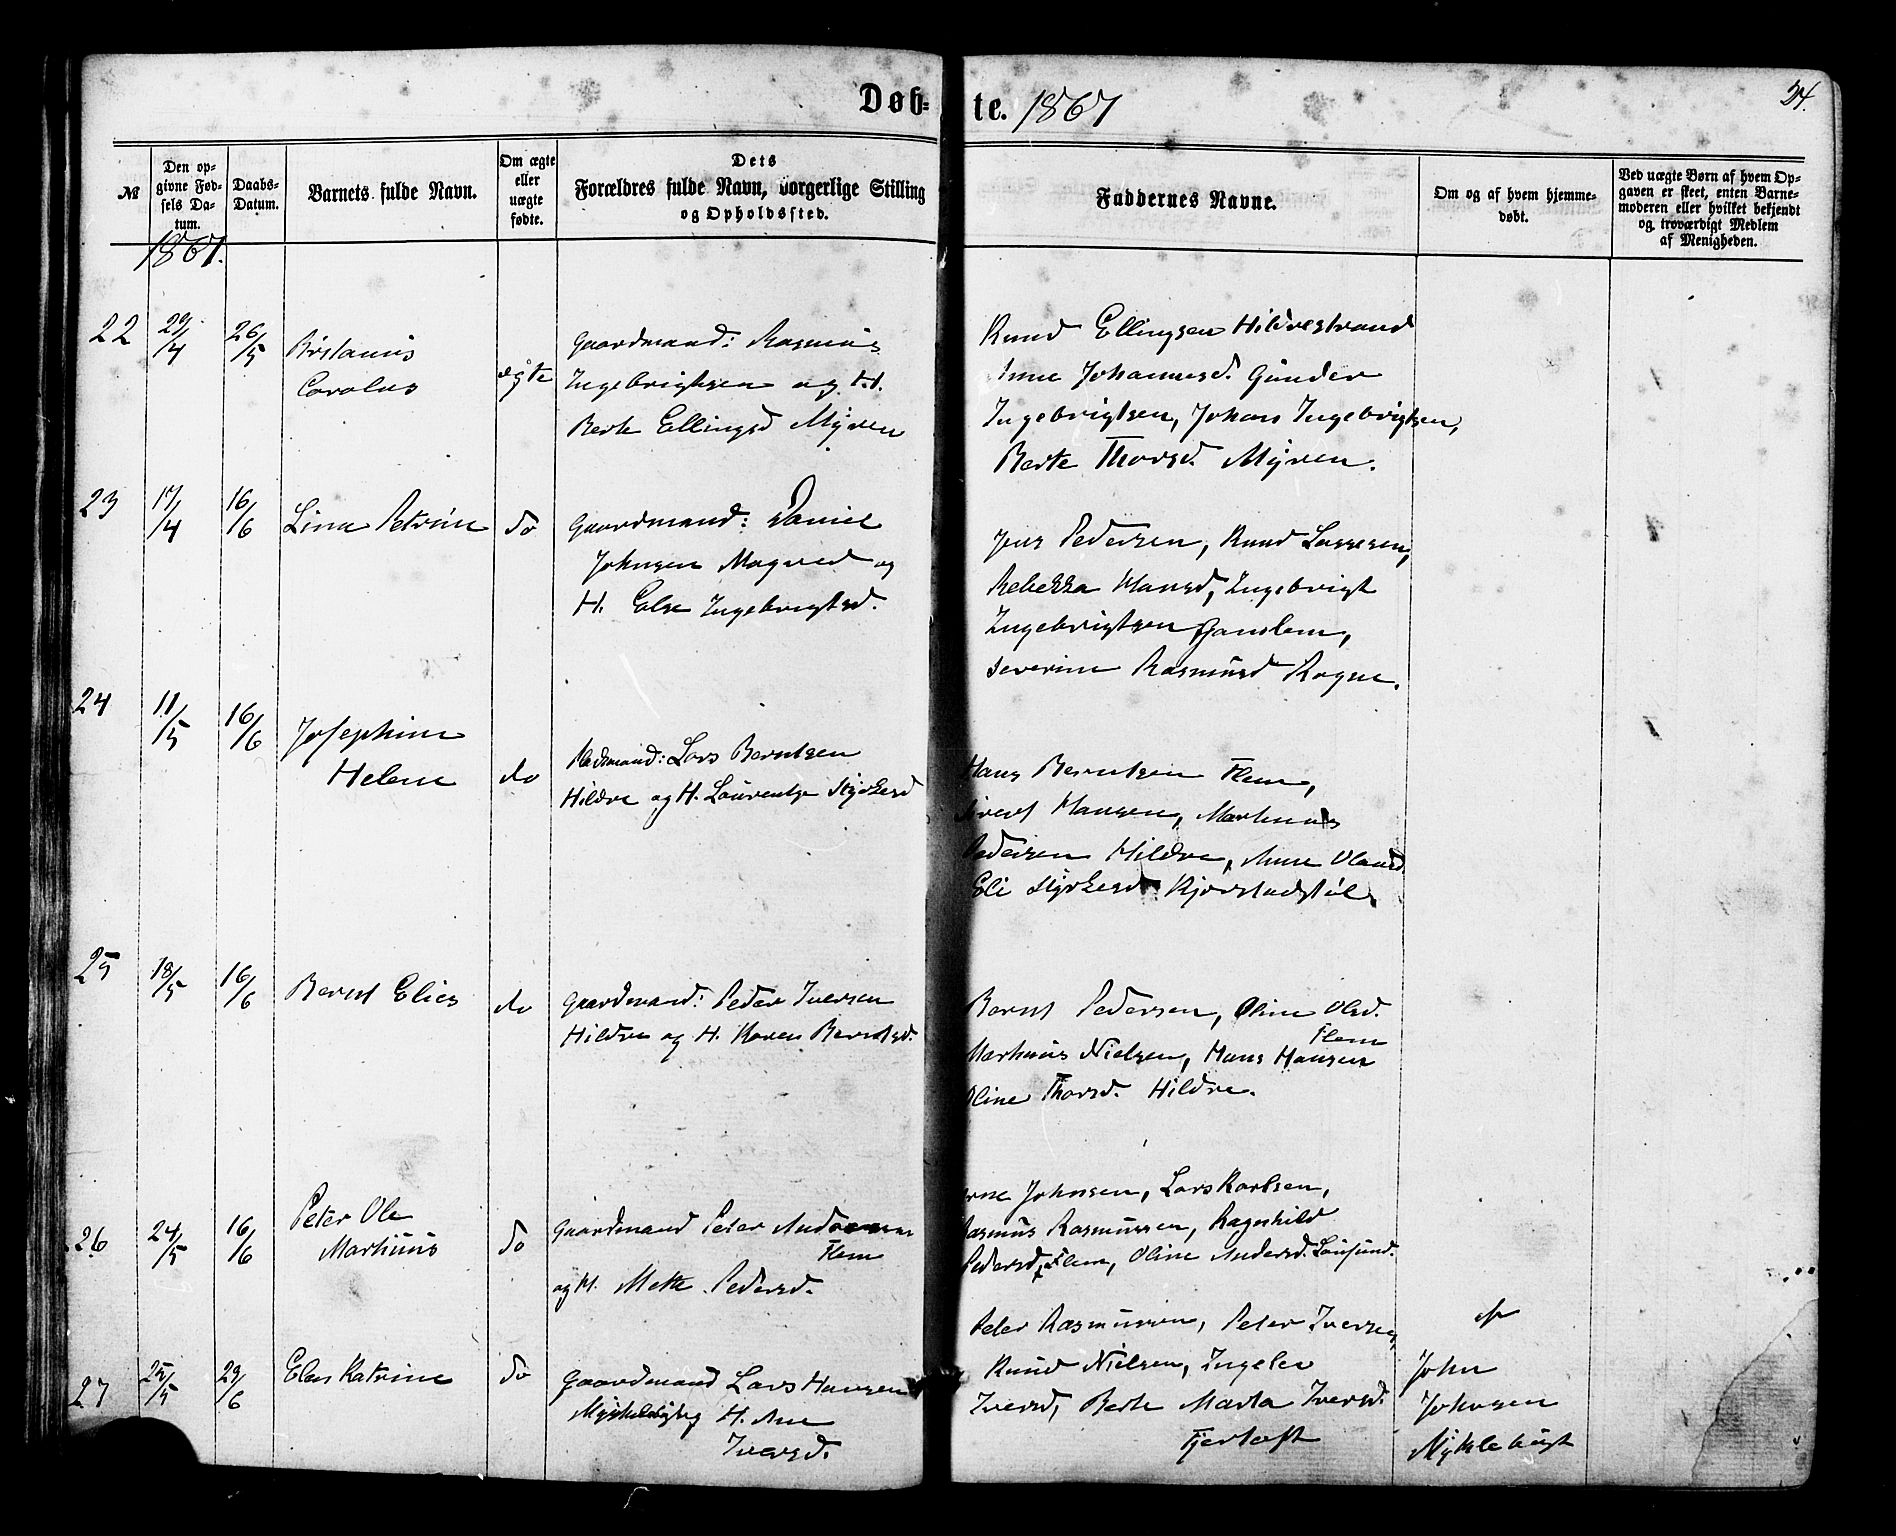 Døb-
te. 1867
24.
№
Den op-
givne Fød-
sels Da-
tum.
Daabs-
Datum.
Barnets fulde Navn.
Om ægte
eller
uægte
fødte.
Dets
Forældres fulde Navn, borgerlige Stilling
og Opholdssted.
Faddernes Navne.
Om og af hvem hjemme-
døbt.
Ved uægte Børn af hvem Op-
gaven er skeet, enten Barne-
moderen eller hvilket bekjendt
og troværdigt Medlem
af Menigheden.
1867.
22
29/4
26/5
Carolus
ægte
Gaardmand: Rasmus
Ingebrigtsen og H.
Berte Ellingsd Myren
Knud Ellingsen Hildrestrand
Anne Johannesd. Gunder
Ingebrigtsen, Johans Ingebrigtsen,
Berte Thorsd. Myren.
23
17/4
16/6
Lina Petrine
do
Gaardmand: Daniel
Johnsen Mogned og
H. Else Ingebrigtsd.
Jens Pedersen, Knud Lassesen,
Rebekka Hansd, Ingebrigt
Ingebrigtsen Gamlem,
Severine Rasmusd Rogne.
24
11/5
16/6
Josephine
Helene
do
Pladsmand: Lars Berntsen
Hildre og H. Laurentse Styrkersd
Hans Berntsen Flem,
Sivert Hansen, Martinus
Pedersen Hildre, Anne Olausd
Eli Styrkersd Kjørstadstøl.
25
18/5
16/6
Bernt Elias
do
Gaardmand: Peder Iversen
Hildre og H. Karen Berntsd.
Bernt Pedersen, Oline Olsd.
Flem
Martinus Nielsen, Hans Hansen
Oline Thorsd. Hildre.
26
24/5
16/6
Peter Ole
Martinus
do
Gaardmand Peter Andersen
Flem
og H. Mette Pedersd.
Arne Johnsen, Lars Karlsen,
Rasmus Rasmussen, Ragnhild
Pedersd, Flem, Oline Andersd. Lausund.
27
25/5
23/6
Elen Katrine
do
Gaardmand Lars Hansen
Myklebust og H. Ane
Iversd.
Peter Rasmussen, Peter Iversen,
Knud Nielsen, Ingeler
Iversd, Berte Marta Iversd.
Fjertoft
af
John
Johnsen
Myklebust